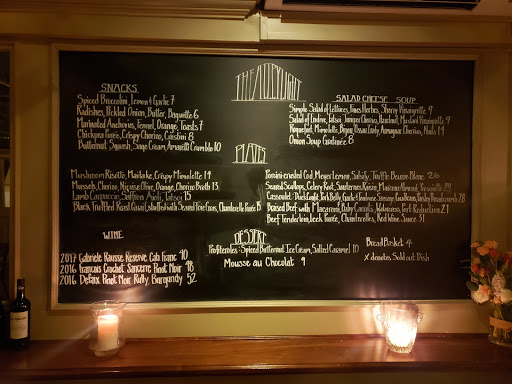 THE ALLEY LIGHT
SNACKS
Spiced Broccolini, Lemon & Garlic 7
Radishes, Pickled Onion, Butter, Baguette 6
Marinated Anchovies, Fennel, Orange, Toasts 7
Chickpea Purée, Crispy Chorizo, Crostini 8
Butternut Squash, Sage Cream, Amaretti Crumble 10
SALAD CHEESE SOUP
Simple Salad of Lettuces, Fines Herbes, Sherry Vinaigrette 9
Salad of Endive, Tatsoi, Hazelnut, Mustard Vinaigrette 9
Roquefort, Mimolette, Armagnac Cherries, Nuts 14
Onion Soup Gratinée 8
PLATS
Mushroom Risotto, Maitake, Crispy Mimolette 19
Mussels, Chorizo, Niçoise Olive, Orange, Chorizo Broth 13
Lamb Carpaccio, Saffron Aioli, Tatsoi 15
Black Truffled Chanterelle Purée 15
Cod, Meyer Lemon, Salsify, Truffle Beurre Blanc 26
Seared Scallops, Celery Root, Sauternes Raisin, Marcona Almond,
Cassoulet - Duck Confit, Pork Belly, Garlic & Toulouse Sausage,
Braised Beef with Macaroni, Baby Carrots, Port Reduction 21
Beef Tenderloin, Leek Purée, Chanterelles, Red Wine Sauce 31
WINE
2017 Gabriele Rausse Reserve Cab Franc 40
2016 François Crochet Sancerre Pinot Noir 48
2016 Defaix Pinot Noir Rully, Burgundy 52
DESSERT
Profiteroles - Spiced Butternut Ice Cream, Salted Caramel 10
Mousse au Chocolat 9
Bread Basket 4
x denotes Sold out Dish